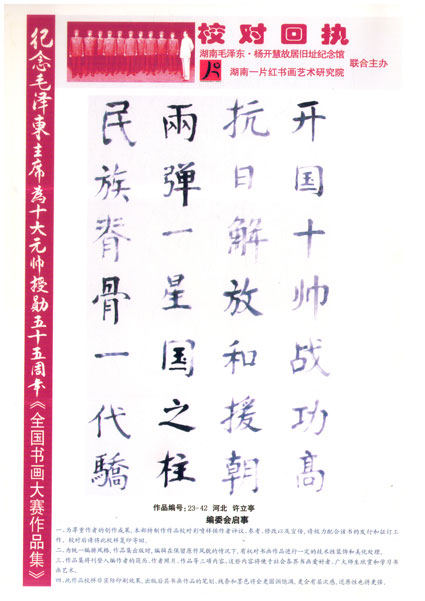 校对回执
湖南毛泽东·杨开慧故居旧址纪念馆
湖南一片红书画艺术研究院
联合主办
纪念毛泽東主席為十大元帅授勋五十五周年《全国书画大赛作品集》
开国十帅战功高
抗日解放和援朝
兩弹一星国之柱
民族脊骨一代驕
作品编号:23-42 河北 许立亭
编委会启事
一.为尊重作者的创作成果,本部特制作作品校对彩喷样供作者评议.参考.修改以及宣传,请极力配合该书的发行和征订工
作。校对后请将此校样复印寄回。
二.为统一编排风格,作品集出版时,编辑在保留原作风貌的情况下,有权对书画作品进行一定的技术性装饰和美化处理。
三.作品集将刊登入编作者的简历,作者照片.作品等三项内容。这些内容将便于社会各界书画爱好者,广大师生欣赏和学习书
画艺术。
四.此作品校样非实际印刷效果,出版后其书画作品的笔划.线条和墨色将会更圆润饱满,更会有层次感,还原性也将更强。